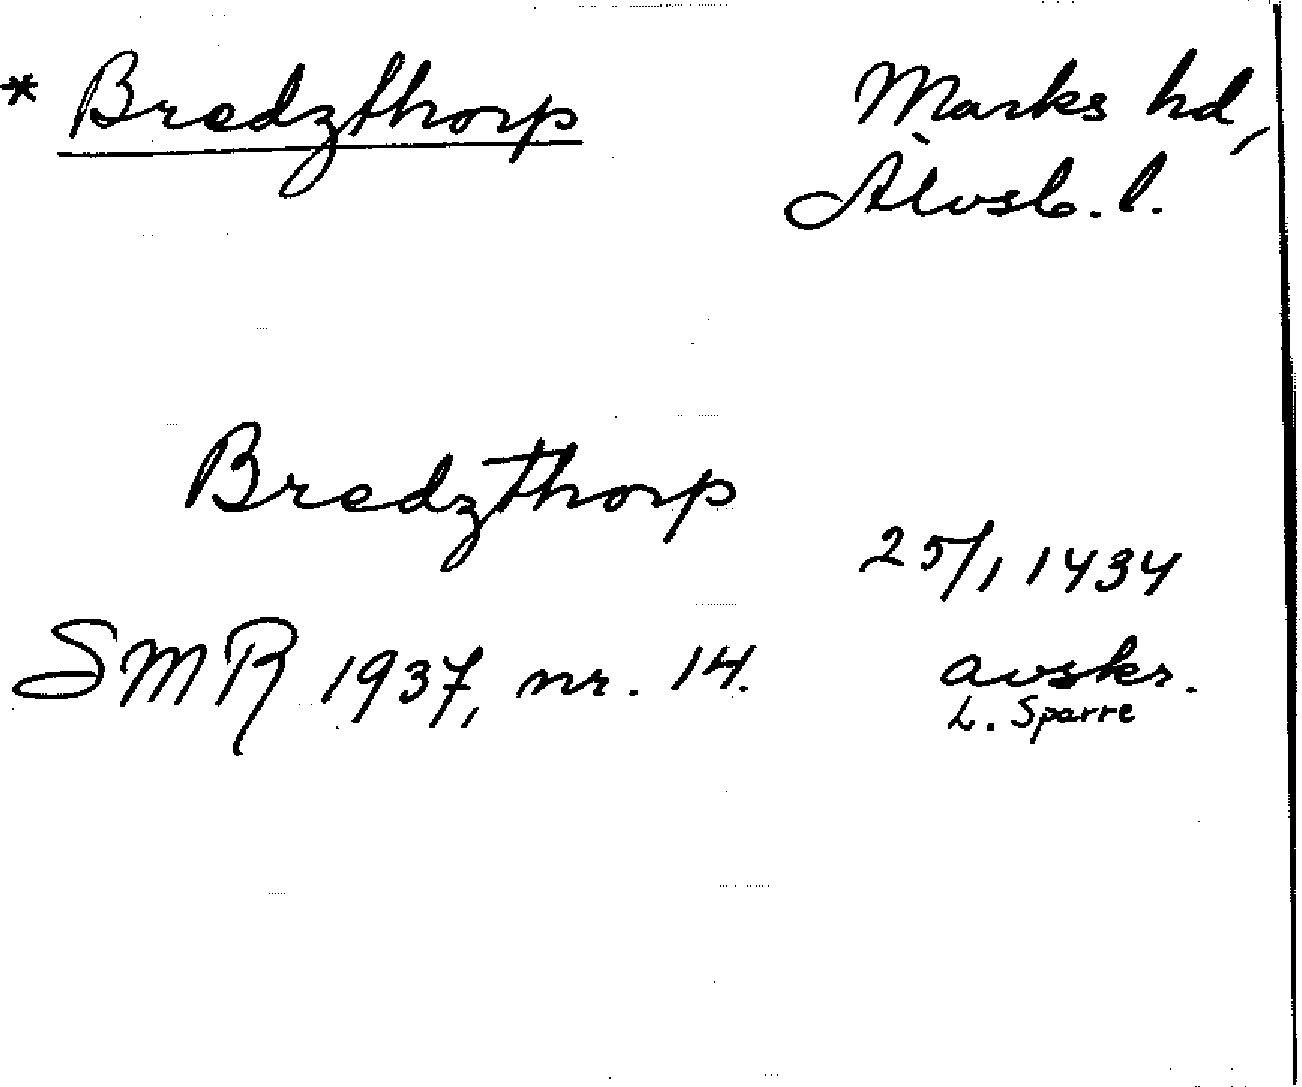 * Bredzthorp
Marks hd,
Älvsb. l.
Bredzthorp
25/1 1434
SMR 1937, nr. 14.
avskr.
L. Sparre